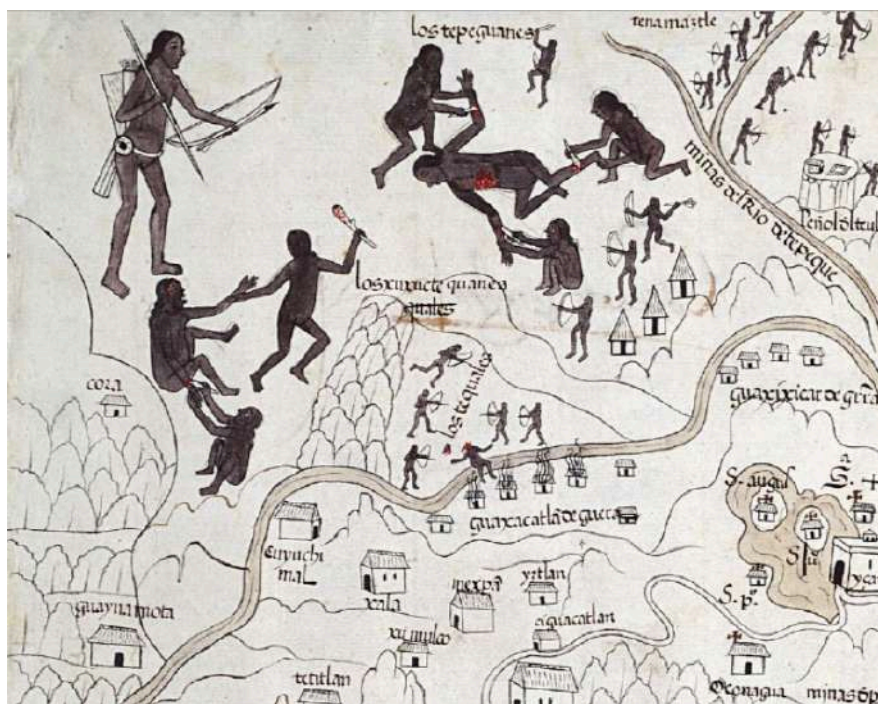 los tepeguanes
tenamaztle
minas del Rio de tepeque
peñol ỏl teul
los xuxuctequanes
quales
los tequales
cora
guaxixicar de grra
guaxacatla de guerra
S. augus
S. ju
S. po
yca
Cuyuchi
mal
xala
mexpa
yztlan
aguacatlan
xumulco
guaynamota
tetitlan
Oconagua
minas